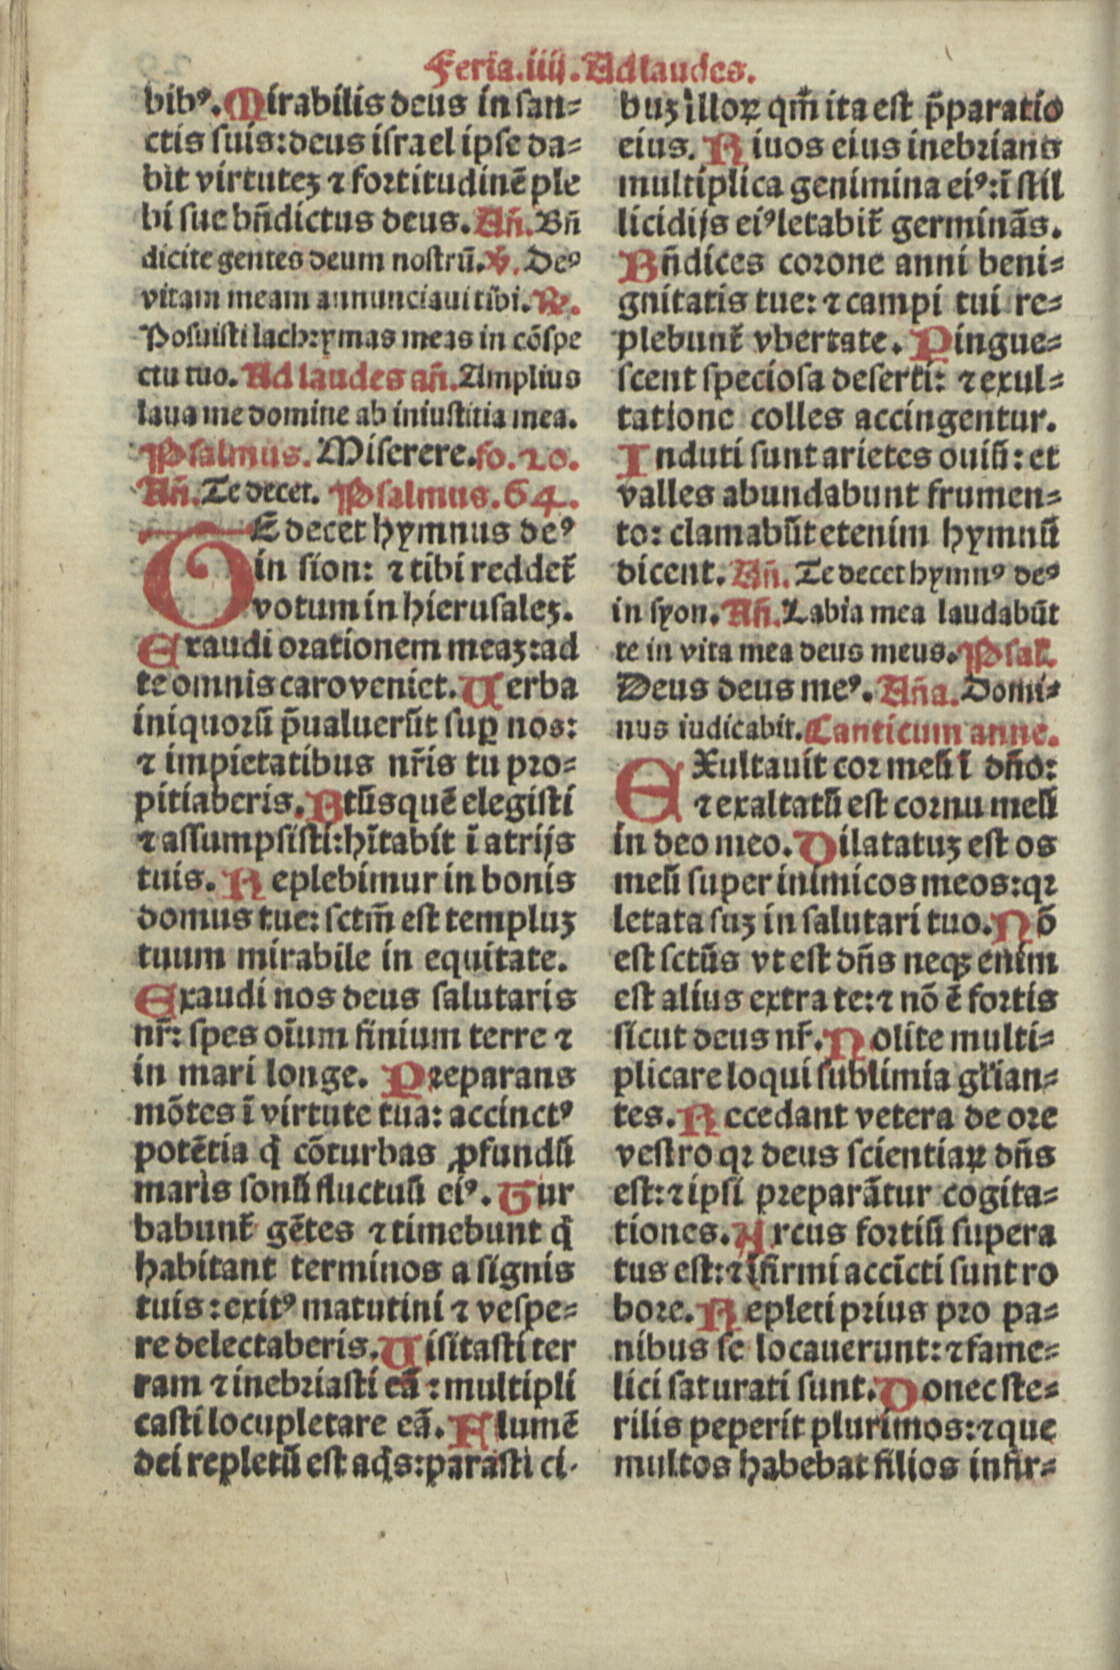 Feria.iiij.Ad laudes.
bibꝰ. Mirabilis deus in san=
ctis suis: deus israel ipse da=
bit virtuteʒ ⁊ fortitudinē ple
bi sue bn̄dictus deus. Añ. Bn̄
dicite gentes deum nostrū. ℣. Deꝰ
vitam meam annunciaui tibi. ℟.
Posuisti lachrymas meas in cōspe
ctu tuo. Ad laudes añ. Amplius
laua me domine ab iniustitia mea.
Psalmus. Miserere. fo. 20.
Añ. Te decet. Psalmus. 64.
TE decet hymnus deꝰ
in sion: ⁊ tibi reddet̄
votum in hierusaleʒ.
Exaudi orationem meaʒ: ad
te omnis caro veniet. Verba
iniquorū p̄ualuerūt suꝑ nos:
⁊ impietatibus nr̄is tu pro=
pitiaberis. Btūs quē elegisti
⁊ assumpsisti: hītabit ī atrijs
tuis. Replebimur in bonis
domus tue: sctm̄ est templuʒ
tuum mirabile in equitate.
Exaudi nos deus salutaris
nr̄: spes oīum finium terre ⁊
in mari longe. Preparans
mōtes ī virtute tua: accinctꝰ
potētia q̄ cōturbas ꝓfundū
maris sonū fluctuū eiꝰ. Tur
babunt̄ gētes ⁊ timebunt q̄
habitant terminos a signis
tuis: exitꝰ matutini ⁊ vespe=
re delectaberis. Visitasti ter
ram ⁊ inebriasti eā: multipli
casti locupletare eā. Flumē
dei repletū est aq̄s: parasti ci-
buʒ illoꝝ qm̄ ita est p̄paratio
eius. Riuos eius inebrians
multiplica genimina eiꝰ: ī stil
licidijs eiꝰ letabit̄ germinās.
Bn̄dices corone anni beni=
gnitatis tue: ⁊ campi tui re=
plebunt̄ vbertate. Pingue=
scent speciosa deserti: ⁊ exul=
tatione colles accingentur.
Induti sunt arietes ouiū: et
valles abundabunt frumen=
to: clamabūt etenim hymnū
dicent. Añ. Te decet hymnꝰ deꝰ
in syon. Añ. Labia mea laudabūt
te in vita mea deus meus. Psal̄.
Deus deus meꝰ. Aña. Domi=
nus iudicabit. Canticum anne.
EXultauit cor meū ī dn̄o:
⁊ exaltatū est cornu meū
in deo meo. Dilatatuʒ est os
meū super inimicos meos: qꝛ
letata suʒ in salutari tuo. Nō
est sctūs vt est dn̄s neqʒ enim
est alius extra te: ⁊ nō ē fortis
sicut deus nr̄. Nolite multi=
plicare loqui sublimia gl̄ian=
tes. Recedant vetera de ore
vestro qꝛ deus scientiaꝝ dn̄s
est: ⁊ ipsi preparātur cogita=
tiones. Arcus fortiū supera
tus est: ⁊ īfirmi accīcti sunt ro
bore. Repleti prius pro pa=
nibus se locauerunt: ⁊ fame=
lici saturati sunt. Donec ste=
rilis peperit plurimos: ⁊ que
multos habebat filios infir=